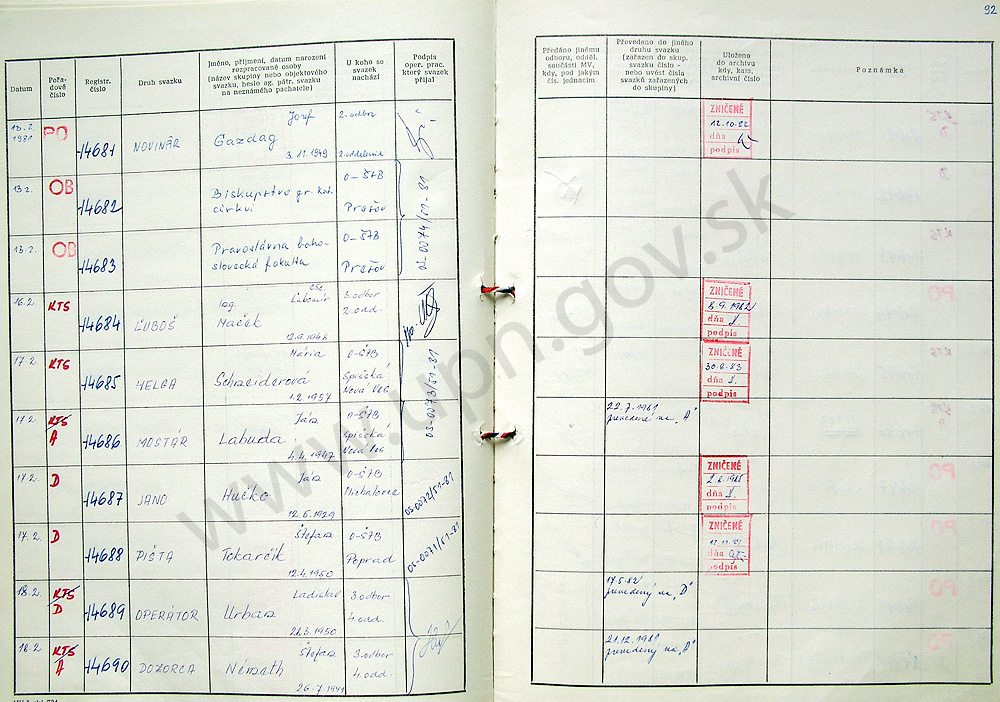 92
Datum
Pořa-
dové
číslo
Registr.
číslo
Druh svazku
Jméno, příjmení, datum narození
rozpracované osoby
(název skupiny nebo objektového
svazku, heslo ag. pátr. svazku
na neznámého pachatele)
U koho se
svazek
nachází
Podpis
oper. prac.
který svazek
přijal
Předáno jinému
odboru, odděl.
součásti MV,
kdy, pod jakým
čís. jednacím
Převedeno do jiného
druhu svazku
(zařazen do skup.
svazku číslo -
nebo uvést čísla
svazků zařazených
do skupiny)
Uloženo
do archivu
kdy, kam,
archivní číslo
Poznámka
13.2.
1981
PO
14681
NOVINÁR
Jozef
Gazdag
3.11.1949
2. odbor
2. oddelenie
ZNIČENÉ
12.10.82
dňa
podpis
13.2.
OB
14682
Biskupstvo gr. kat.
cirkvi
O-ŠTB
Prešov
OS-0074/51-81
13.2.
OB
14683
Pravoslávna boho-
slovecká fakulta
O-ŠTB
Prešov
16.2.
KTS
14684
ĽUBOŠ
Ing. CSc.
Ľubomír
Maček
3. odbor
2. odd.
ZNIČENÉ
8.9.1982
dňa
podpis
17.2.
KTS
14685
HELGA
Mária
Schneiderová
1.2.1957
O-ŠTB
Spišská
Nová Ves
OS-0073/51-81
ZNIČENÉ
dňa
podpis
17.2.
KTS
A
14686
MOSTAR
Ján
Labuda
4.4.1947
O-ŠTB
Spišská
Nová Ves
22.7.1981
prevedené na „A“
17.2.
D
14687
JANO
Ján
Hučko
12.6.1929
O-ŠTB
Michalovce
OS-0072/51-81
ZNIČENÉ
dňa
podpis
17.2.
D
14688
PIŠTA
Štefan
Tokarčík
12.4.1950
O-ŠTB
Poprad
OS-0071/51-81
ZNIČENÉ
dňa
podpis
18.2.
KTS
D
14689
OPERÁTOR
Ladislav
Urban
3. odbor
4. odd.
17.5.82
prevedený na „D“
18.2.
KTS
A
14690
DOZORCA
Štefan
Németh
26.7.1941
3. odbor
4. odd.
21.12.1981
www.upn.gov.sk